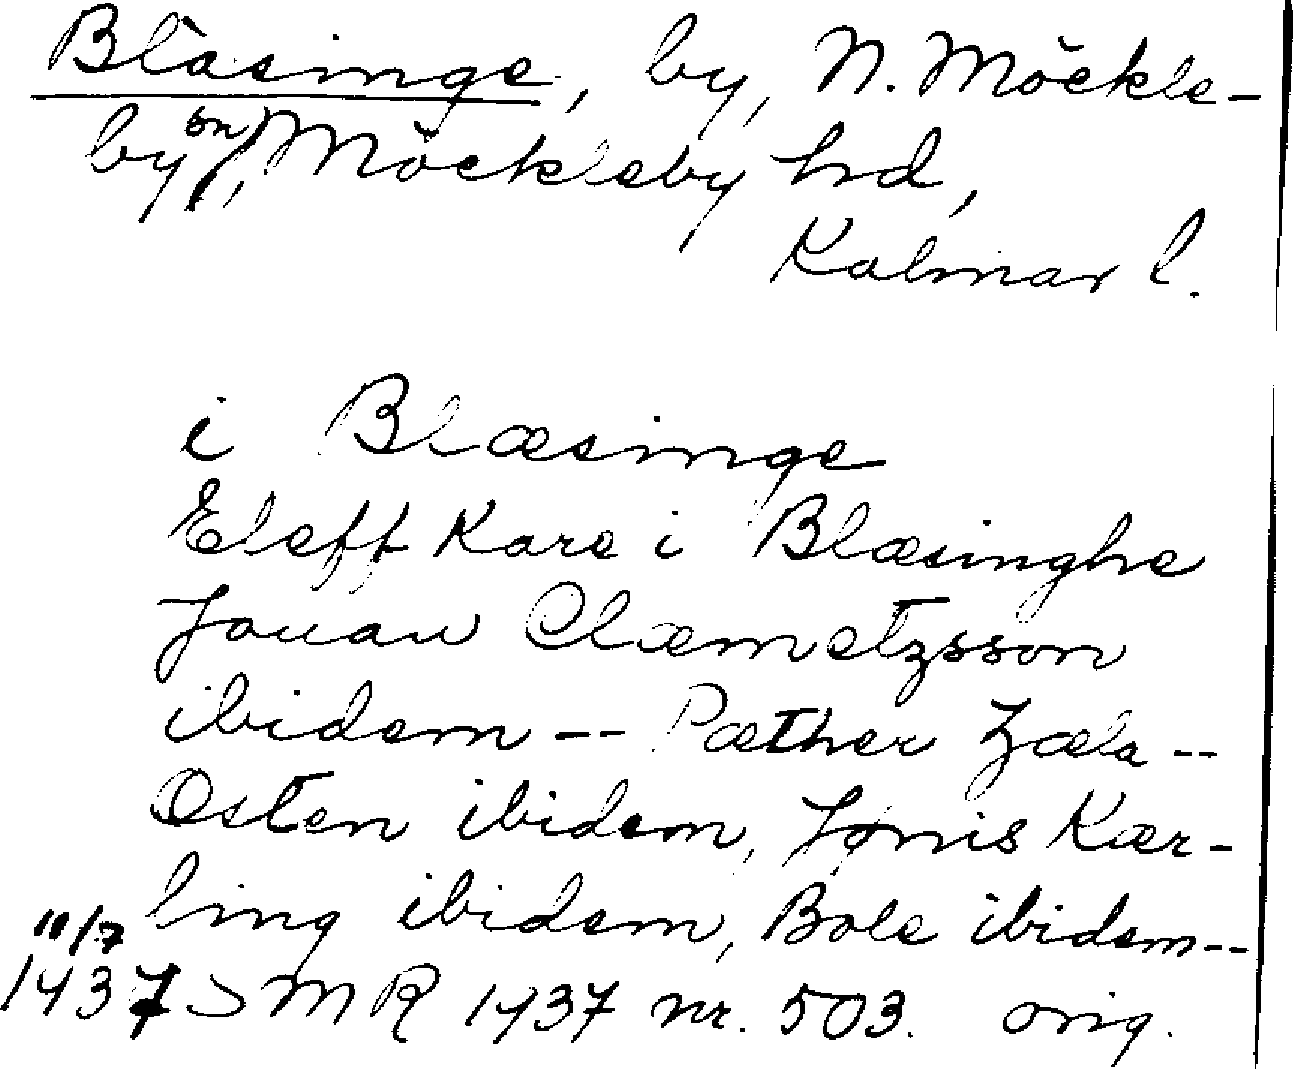 Bläsinge, by, N. Möckle-
by sn, Möckleby hd,
Kalmar l.
i Blæsinge
Eleff Kare i Blæsinghe
Jouan Clæmetzsson
ibidem -- Pæther Zæla --
Østen ibidem, Jønis Kær-
ling ibidem, Bole ibidem --
10/7
1437 SMR 1437 nr. 503. orig.